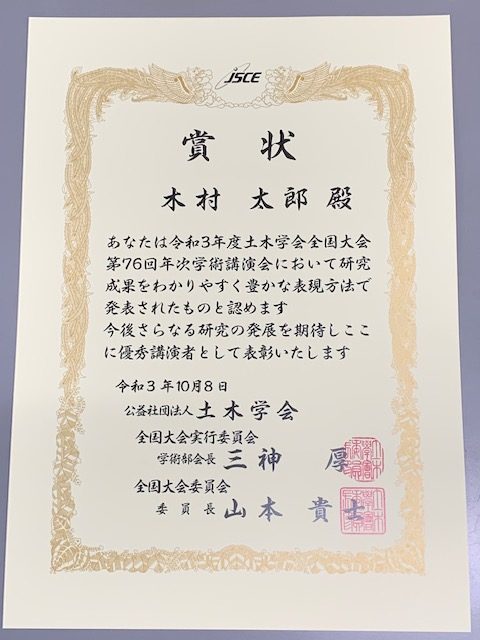 JSCE
賞状
木村 太郎 殿
あなたは令和3年度土木学会全国大会
第76回年次学術講演会において研究
成果をわかりやすく豊かな表現方法で
発表されたものと認めます
今後さらなる研究の発展を期待しここ
に優秀講演者として表彰いたします
令和3年10月8日
公益社団法人 土木学会
全国大会実行委員会
学術部会長 三神 厚
全国大会委員会
委員長 山本 貴士